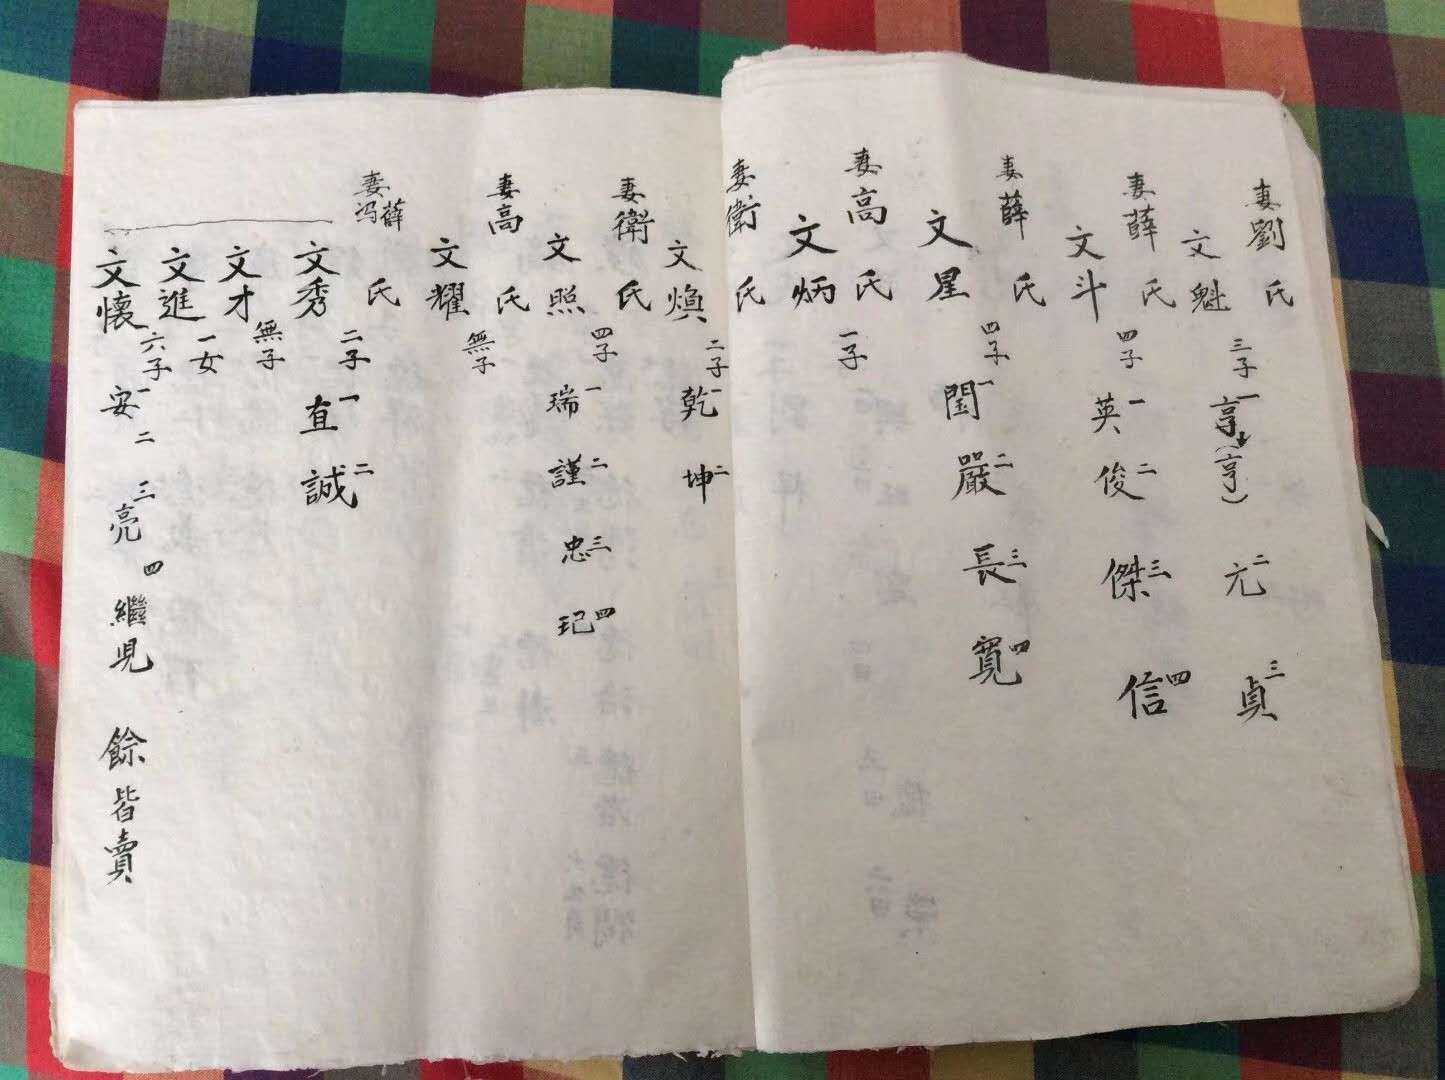 妻劉氏
文魁 三子 一享(亨) 二元 三貞
妻薛氏
文斗 四子 一英 二俊 三傑 四信
妻薛氏
文星 四子 一閏 二嚴 三長 四寬
妻高氏
文炳 一子
妻衛氏
文煥 二子 一乾 二坤
妻衛氏
文照 四子 一瑞 二謹 三忠 四玘
妻高氏
文耀 無子
妻薛冯氏
文秀 二子 一直 二誠
文才 無子
文進 一女
文懷 六子 一安 二 三亮 四繼見 餘皆賣